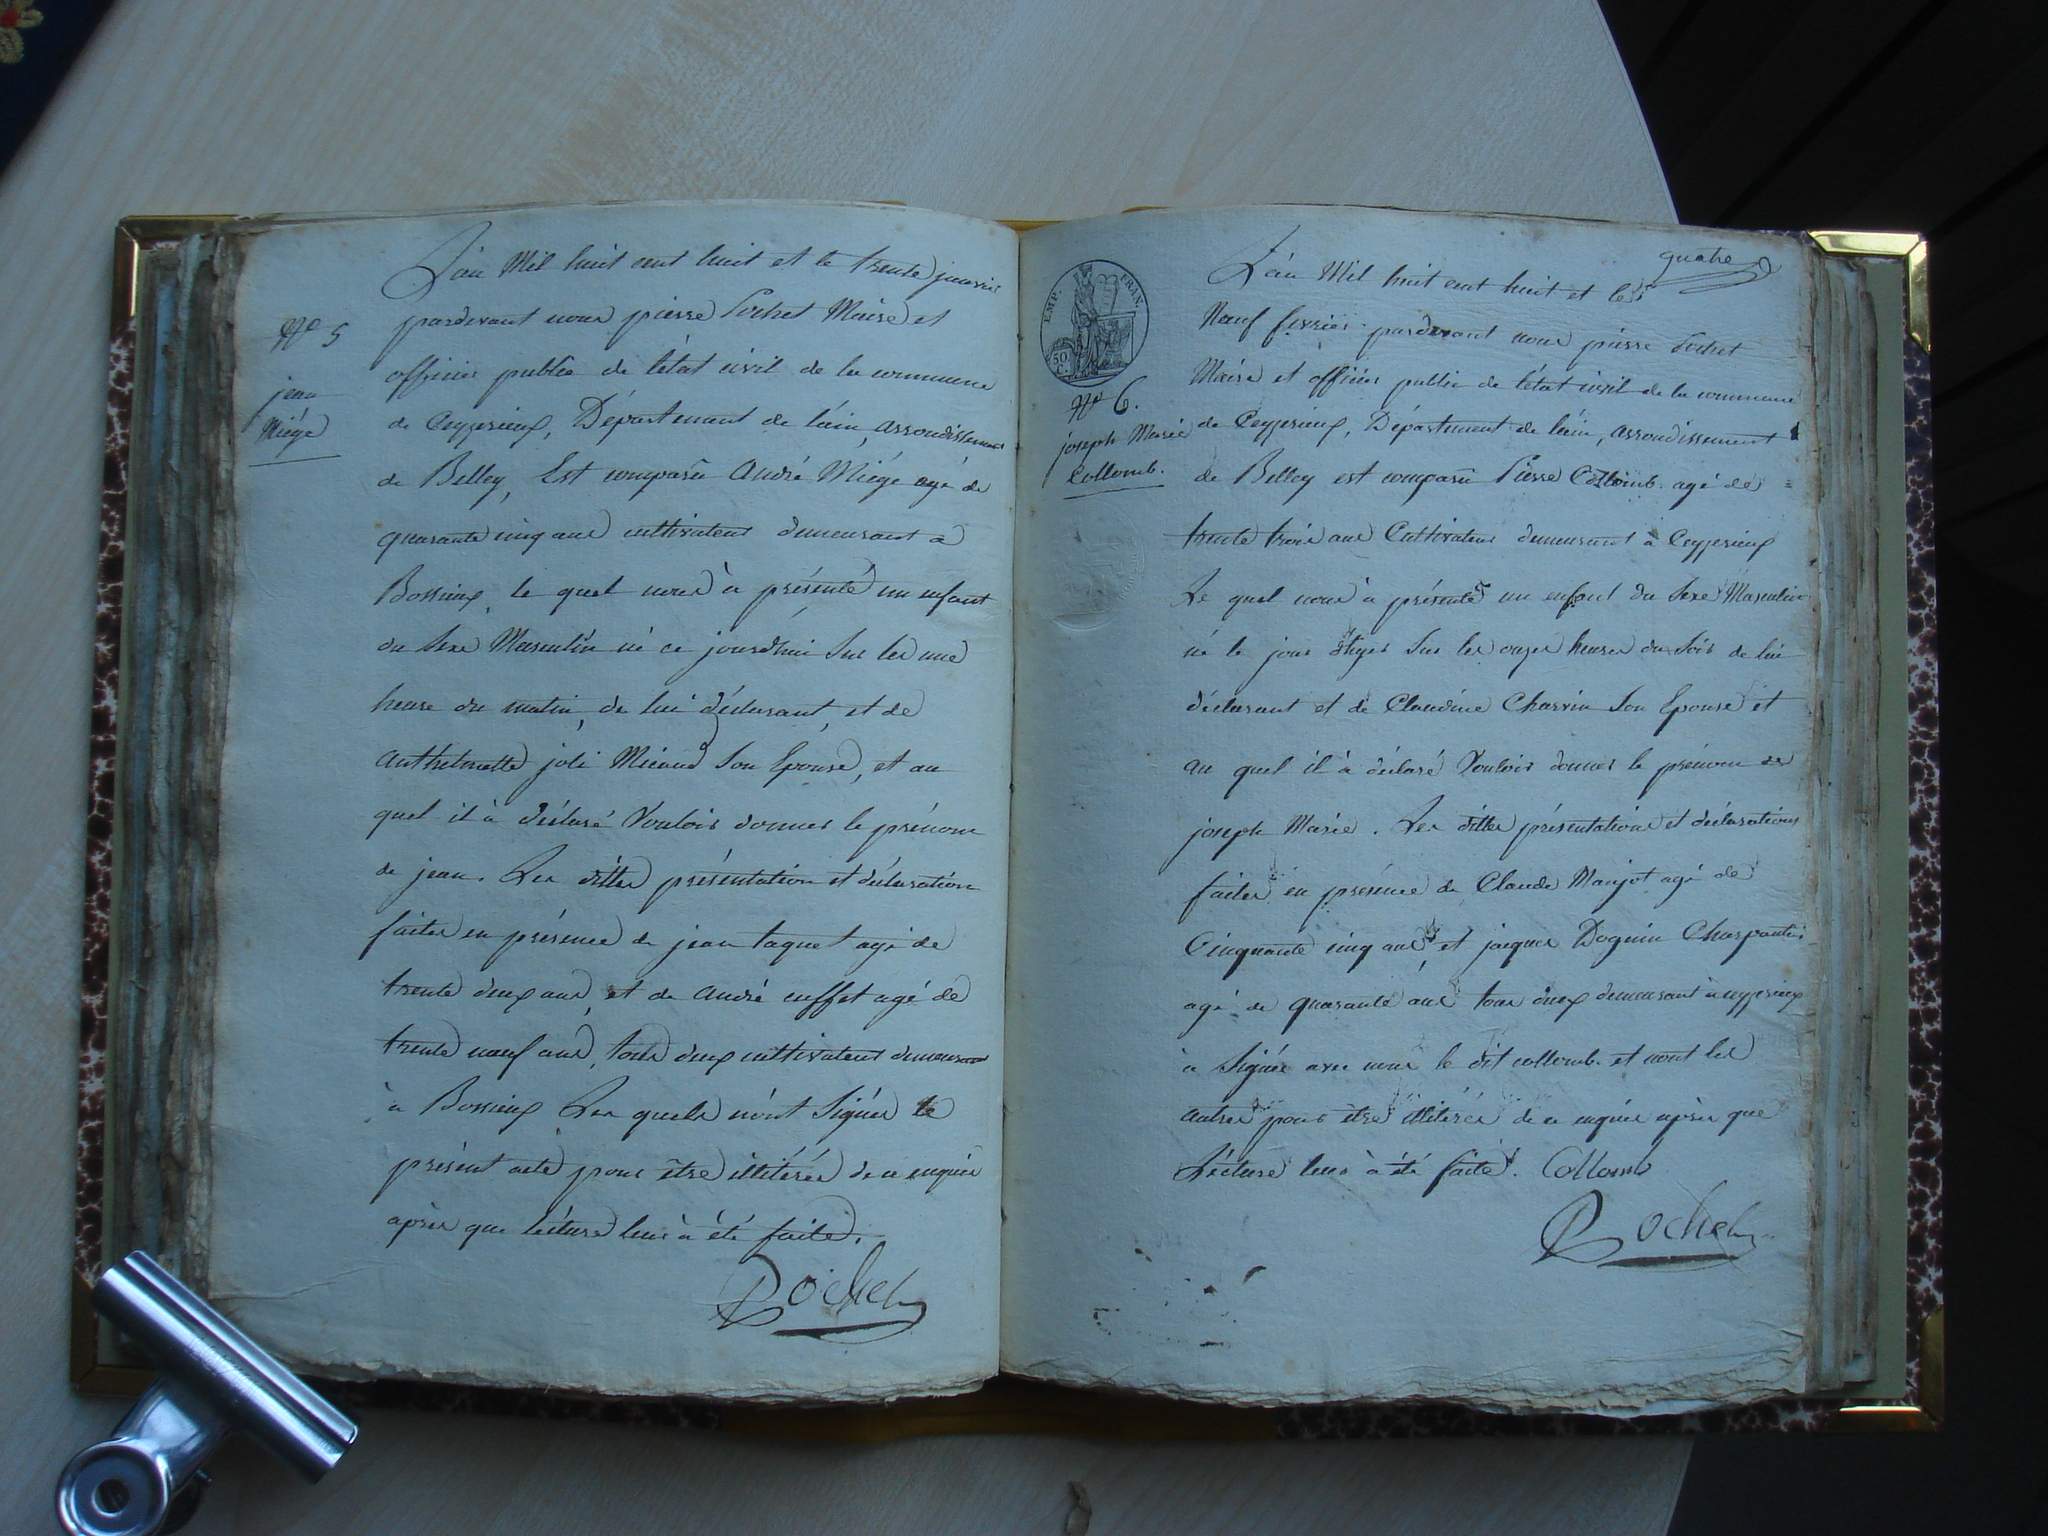 L'an Mil huit cent huit et le trente janvier
pardevant nous pierre Rochet Maire et
officier public de l'état civil de la commune
de Ceyzerieux, Département de l'ain, arrondissement
de Belley, Est comparû André Miége agé de
quarante cinq ans cultivateur demeurant à
Bossieux, le quel nous à présenté un enfant
du Sexe Masculin né ce jourd'hui Sur les une
heure du matin, de lui déclarant, et de
anthelmette joli Micaud Son Epouse, et au
quel il à déclaré Vouloir donner le prénom
de jean. Les dittes présentation et déclaration
faites en présence de jean taquet agé de
trente deux ans, et de André cuffet agé de
trente neuf ans, tous deux cultivateurs demeurant
à Bossieux Les quels n'ont Signés le
présent acte pour être illitérés de ce enquis
après que lécture leur à été faite.
Rochet
Nº 5
jean
Miége
quatre
EMP. FRAN.
50 C.
L'an Mil huit cent huit et les
Neuf fevrier pardevant nous pierre Rochet
Maire et officier public de l'état civil de la commune
de Ceyzerieux, Département de l'ain, arrondissement
de Belley est comparû Pierre Collomb agé de
trente trois ans Cultivateur demeurant à Ceyzerieux
Le quel nous à présenté un enfant du Sexe Masculin
né le jour d'hyer Sur les onzes heures du Soir de lui
déclarant et de Claudine Charvin Son Epouse et
au quel il à déclaré Vouloir donner le prénom de
joseph Marie. Les dittes présentation et déclarations
faites en présence de Claude Manjot agé de
Cinquante cinq ans, et jacques Doguin Charpantier
agé de quarante ans tous deux demeurant à ceyzerieux
à Signée avec nous le dit collomb et nont les
autres pour être illitérés de ce enquis après que
Lécture leur à été faite. Collomb
Rochet
Nº 6.
joseph Marie
Collomb.